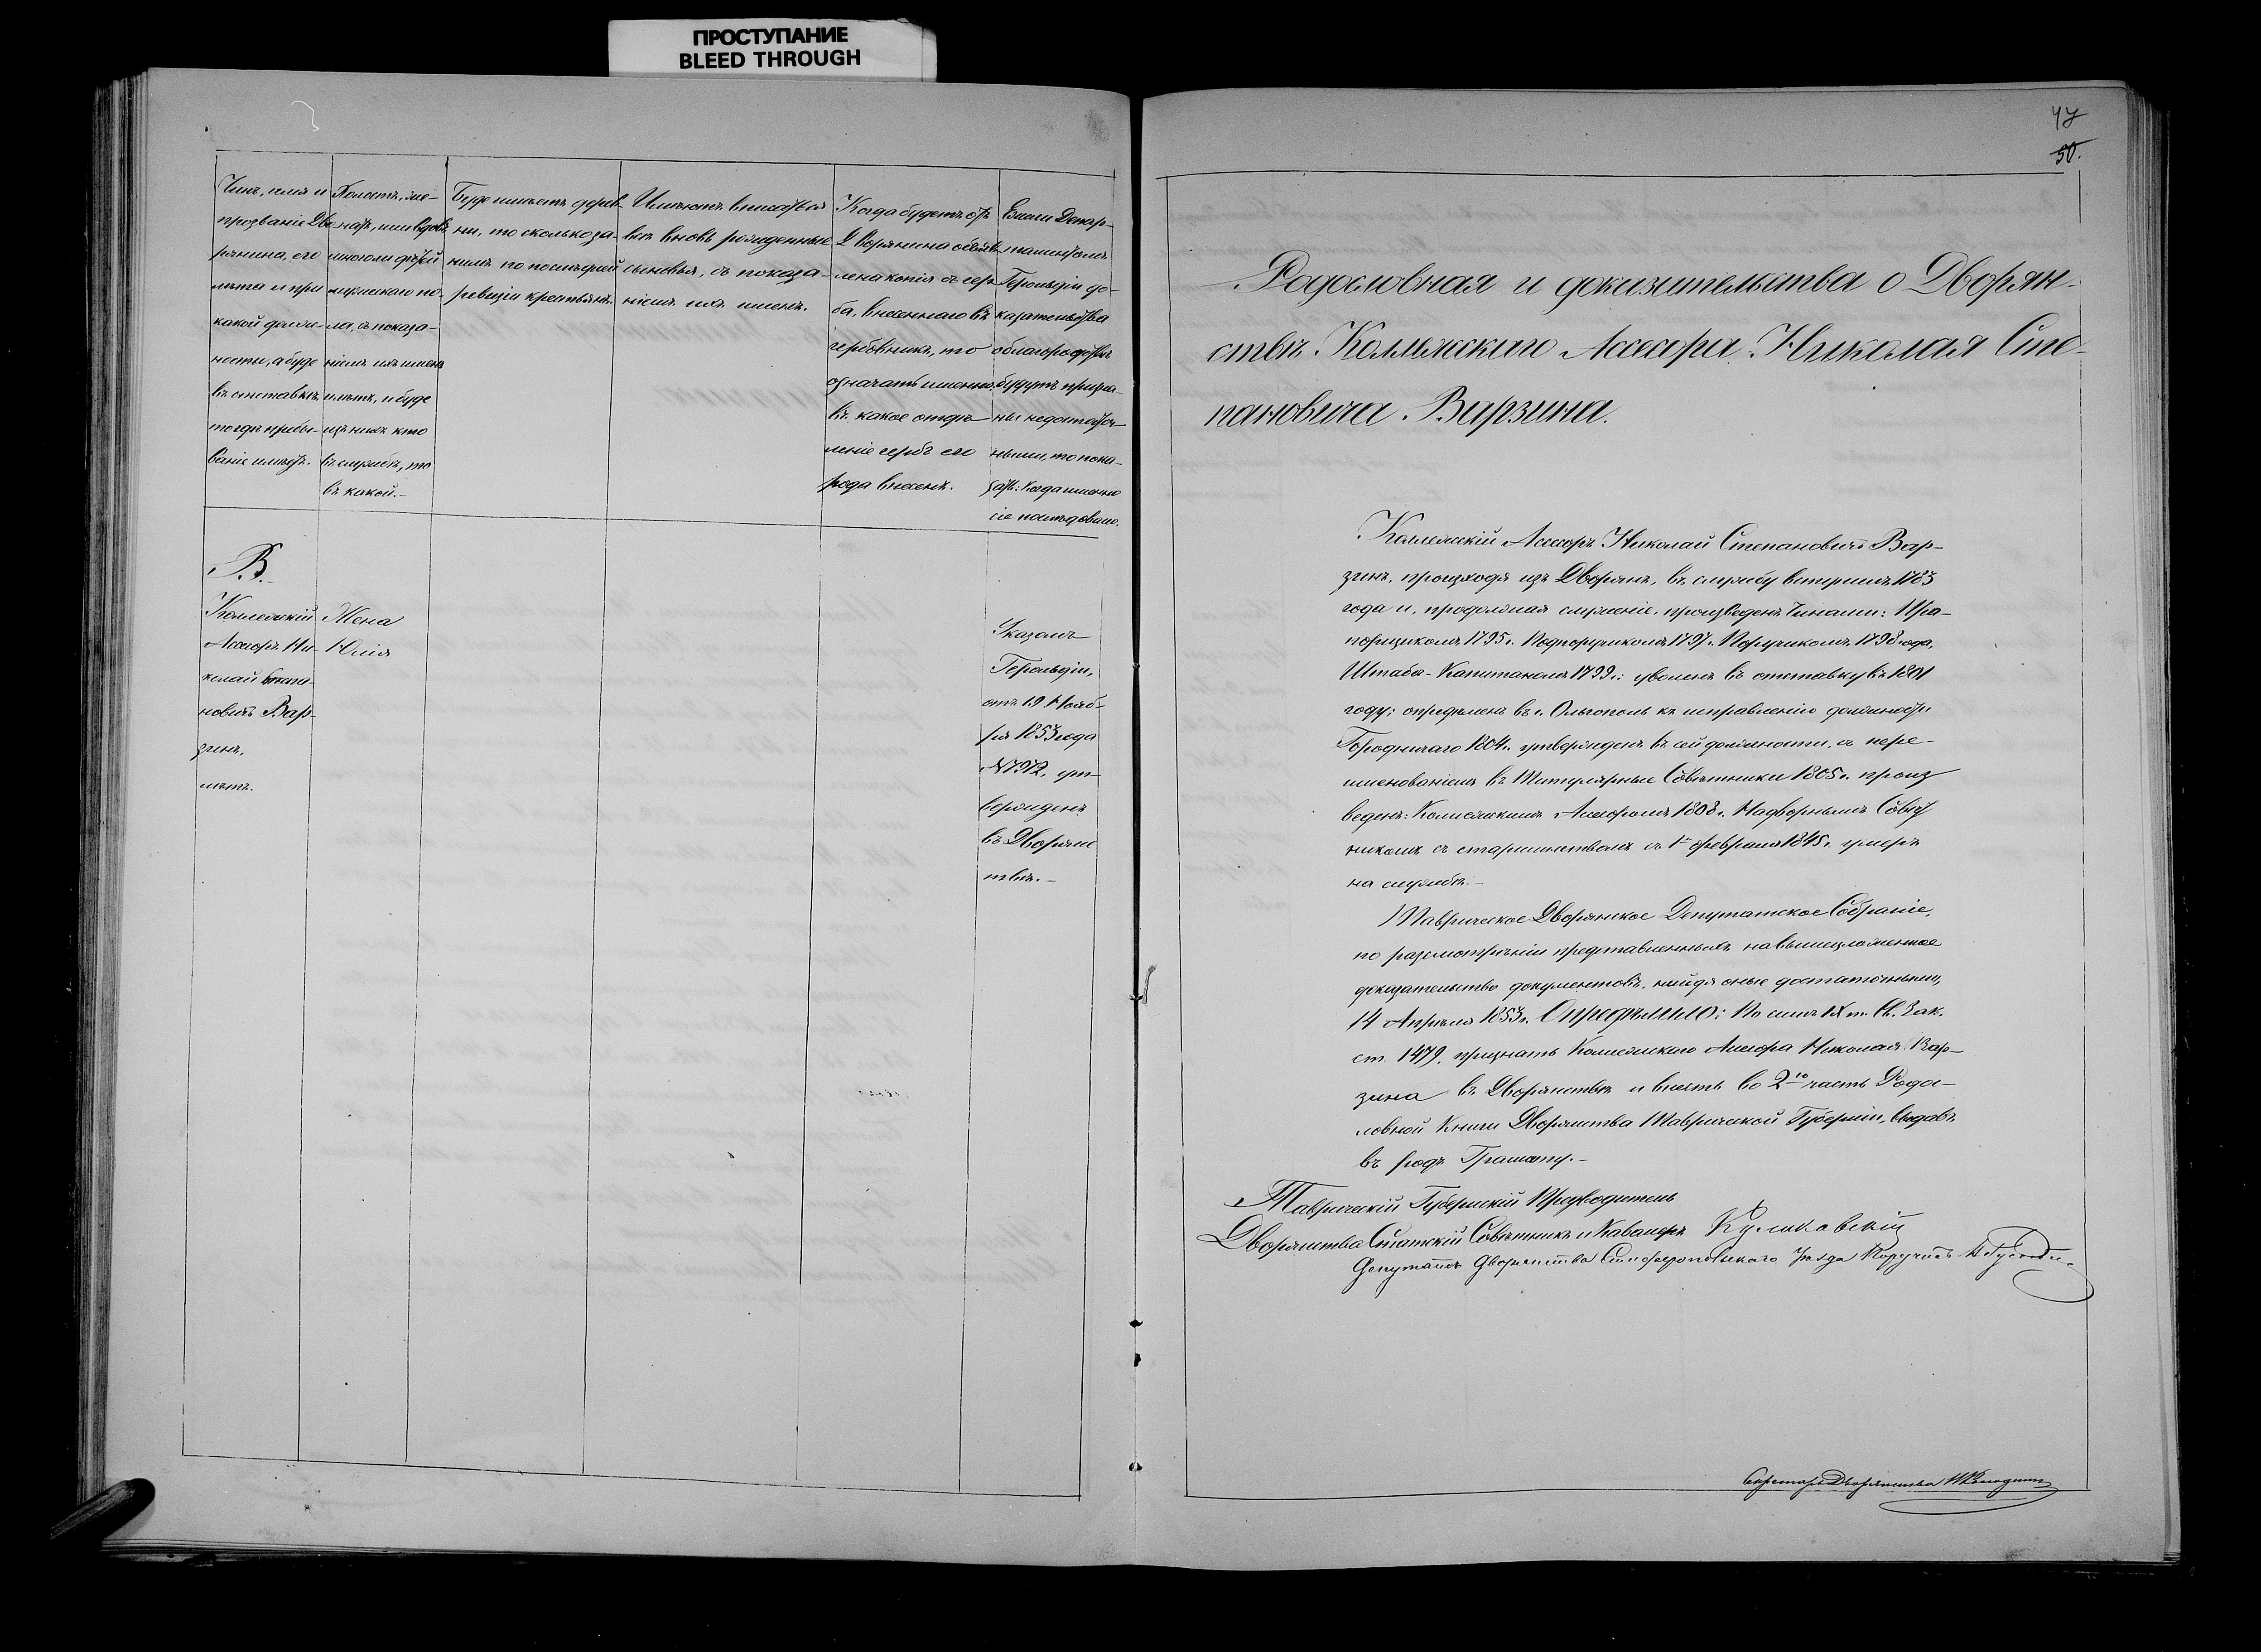 ПРОСТУПАНИЕ
BLEED THROUGH
Чинъ, имя и
прозваніе Дво-
рянина, его
лѣта и при
какой долж-
ности, а буде
въ отставкѣ
то гдѣ пребы-
ваніе имѣетъ.
Холостъ, же-
натъ, или вдовъ
многоли дѣтей
мужескаго по-
ла, съ показа-
ніемъ ихъ именъ
и лѣтъ, и буде
изъ нихъ кто
въ службѣ, то
въ какой.-
Буде имѣетъ дерев-
ни, то сколько за
нимъ по послѣдней
ревизіи крестьянъ.
Имѣютъ вписаться
всѣ вновь рожденные
сыновья, съ показа-
ніемъ ихъ именъ.
Когда будетъ отъ
Дворянина объяв-
лена копія съ гер-
ба, внесеннаго въ
гербовникъ, то
означать именно,
въ какое отдѣ-
леніе гербъ его
рода внесенъ.
Ежели Депар-
таментомъ
Герольдіи до-
казательства
о благородствѣ
будутъ призна-
ны недостаточ-
ными, то пока-
зать: когда именно
сіе послѣдовало.
В.
Коллежскій
Ассесоръ Ни-
колай Степа-
новичъ Вар-
зинъ,
лѣтъ.
Жена
Юлія
Указомъ
Герольдіи,
отъ 19 Нояб-
ря 1853 года
№7972, ут-
вержденъ
въ Дворянс
твѣ.-
47
50.
Родословная и доказательства о Дворян-
ствѣ Коллежскаго Ассесора Николая Сте-
пановича Варзина.
Коллежскій Ассесоръ Николай Степановичъ Вар-
зинъ, происходя изъ Дворянъ, въ службу вступилъ 1783
года и, продолжая служеніе, произведенъ Чинами: Пра-
порщикомъ 1795г. Подпоручикомъ 1797г. Поручикомъ 1798 года,
Штабс-Капитаномъ 1799г.: уволенъ въ отставку въ 1801
году; опредѣленъ въ г. Ольгополь къ исправленію должности
Городничаго 1804г. утвержденъ въ сей должности, съ пере-
именованіемъ въ Титулярные Совѣтники 1805г. произ
веденъ: Коллежскимъ Ассесоромъ 1808г. Надворнымъ Совѣт
никомъ съ старшинствомъ съ 1го февраля 1845г. умеръ
на службѣ.-
Таврическое Дворянское Депутатское Собраніе,
по разсмотрѣніи представленныхъ на вышеизложенное
доказательство документовъ, найдя оные достаточными,
14 Апрѣля 1853г. Опредѣлило: По силѣ IX т. Св. Зак.
ст. 1479, признать Коллежскаго Ассесора Николая Вар-
зина въ Дворянствѣ и внесть во 2ю часть Родос-
ловной Книги Дворянства Таврической Губерніи, выдавъ
въ родъ Грамоту.-
Таврическій Губернскій Предводитель
Дворянства Статскій Совѣтникъ и Кавалеръ Куликовскій
Депутатъ Дворянства Симферопольскаго Уѣзда Поручикъ
Секретарь Дворянства